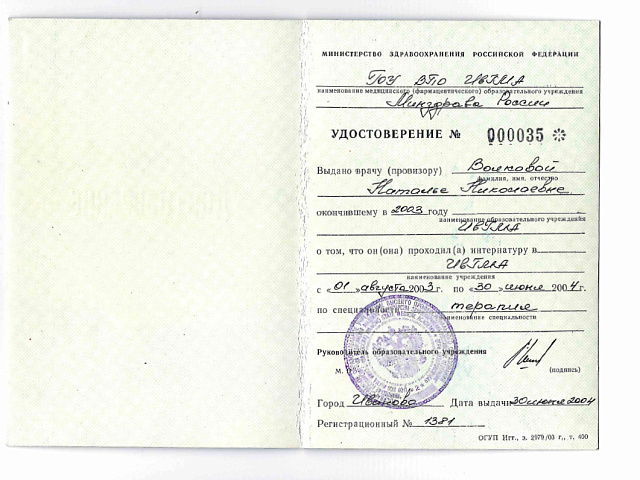 МИНИСТЕРСТВО ЗДРАВООХРАНЕНИЯ РОССИЙСКОЙ ФЕДЕРАЦИИ
ГОУ ВПО ИвГМА
наименование медицинского (фармацевтического) образовательного учреждения
Минздрава России
УДОСТОВЕРЕНИЕ № 000035 ※
Выдано врачу (провизору) Волковой
фамилия, имя, отчество
Наталье Николаевне
окончившему в 2003 году
наименование образовательного учреждения
ИвГМА
о том, что он(она) проходил(а) интернатуру в
ИвГМА
наименование учреждения
с «01» августа 2003 г. по «30» июня 2004 г.
по специальности терапия
наименование специальности
Руководитель образовательного учреждения
М. (подпись)
Город Иваново Дата выдачи 30 июня 2004
Регистрационный № 1381
ОГУП Игт., з. 2979/03 г., т. 400